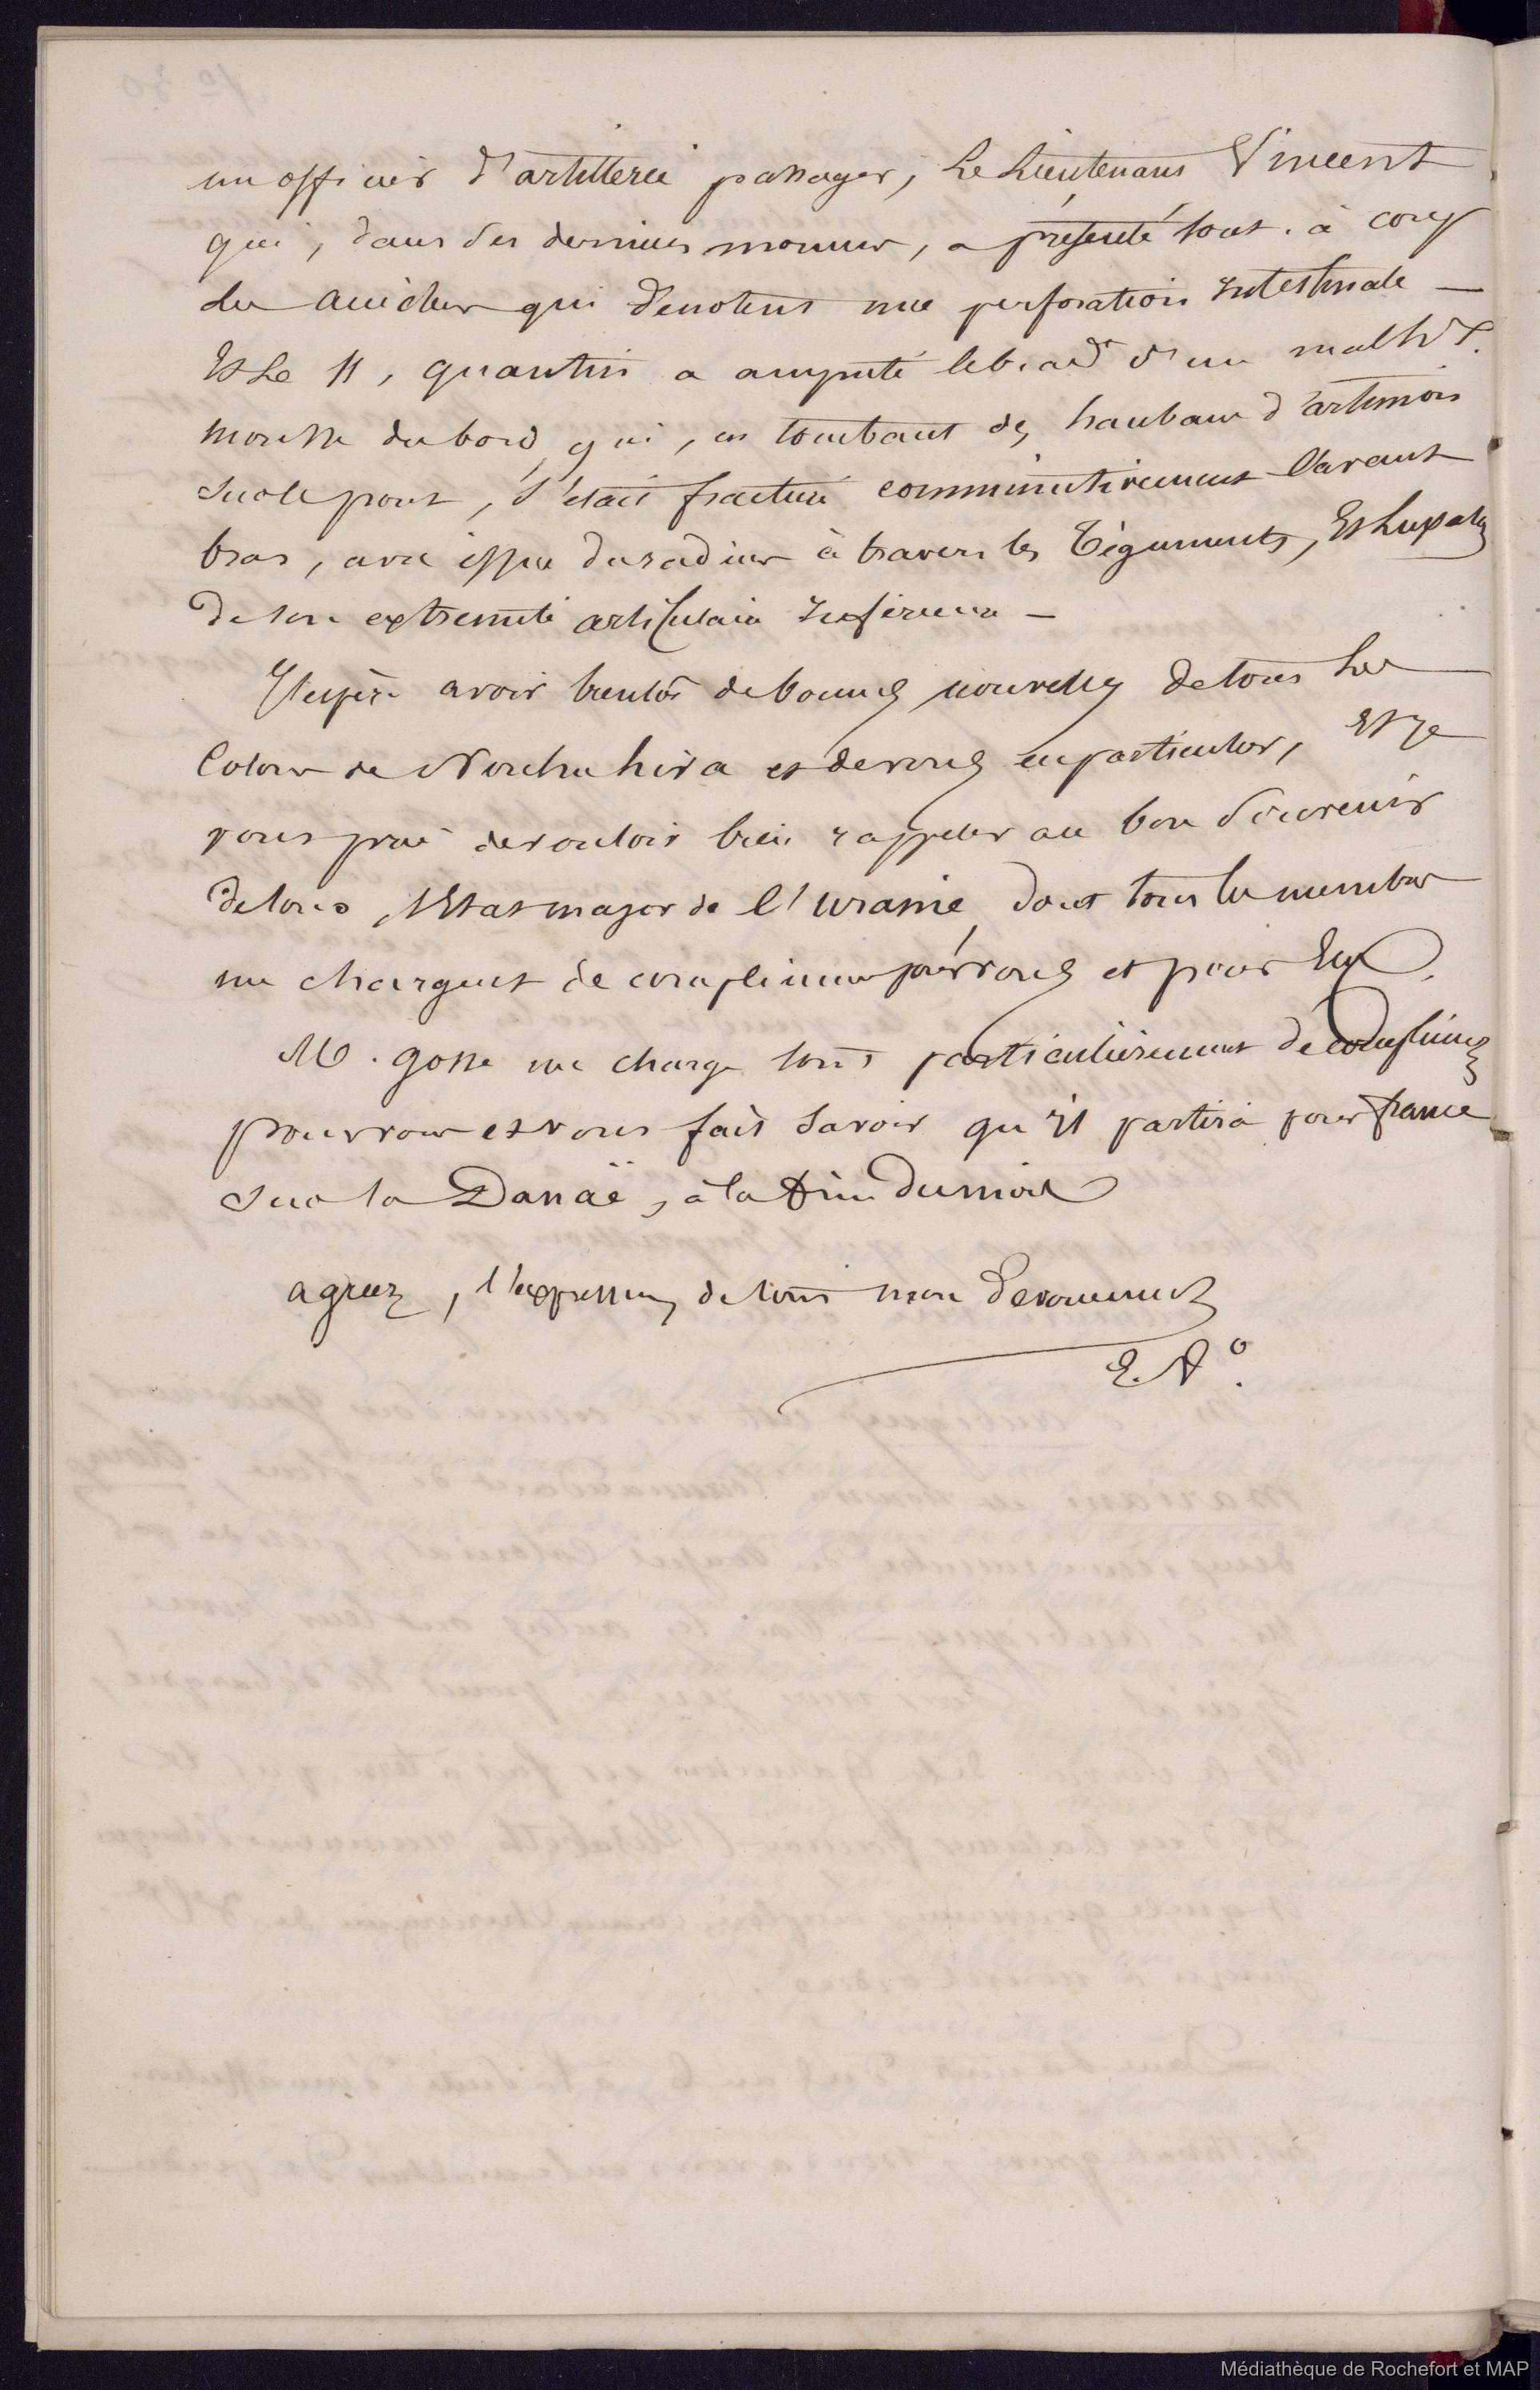 un officier d'artillerie passager, Le Lieutenant Vincent
qui, dans ses derniers moments, a présenté tout. à coup
des accidens qui dénotent une perforation Intestinale —
Et Le 11, quantin a amputé le bras d'un malh.x
mousse du bord, qui, en tombant des haubans d'artimon
sur le pont, s'était fracturé comminutivement l'avant
bras, avec issue du radius à travers les Téguments, Et Luxation
de son extremité articulaire Inférieure —
J'espère avoir bientôt de bonnes nouvelles de tous Les
Colons de Noukahiva et de vous en particulier, Et Je
vous prie de vouloir bien rappeler au bon Souvenir
de tous, l'Etat major de l'Uranie, dont tous les membres
me chargent de complimens pour vous et pour Eux.
M. gosse me charge tout particulièrement de complimens
pour vous et vous fait Savoir qu'Il partira pour france
sur la Danaë, à la fin du mois
agréez, l'expression de tout mon Devouement
E. A°.
Médiathèque de Rochefort et MAP